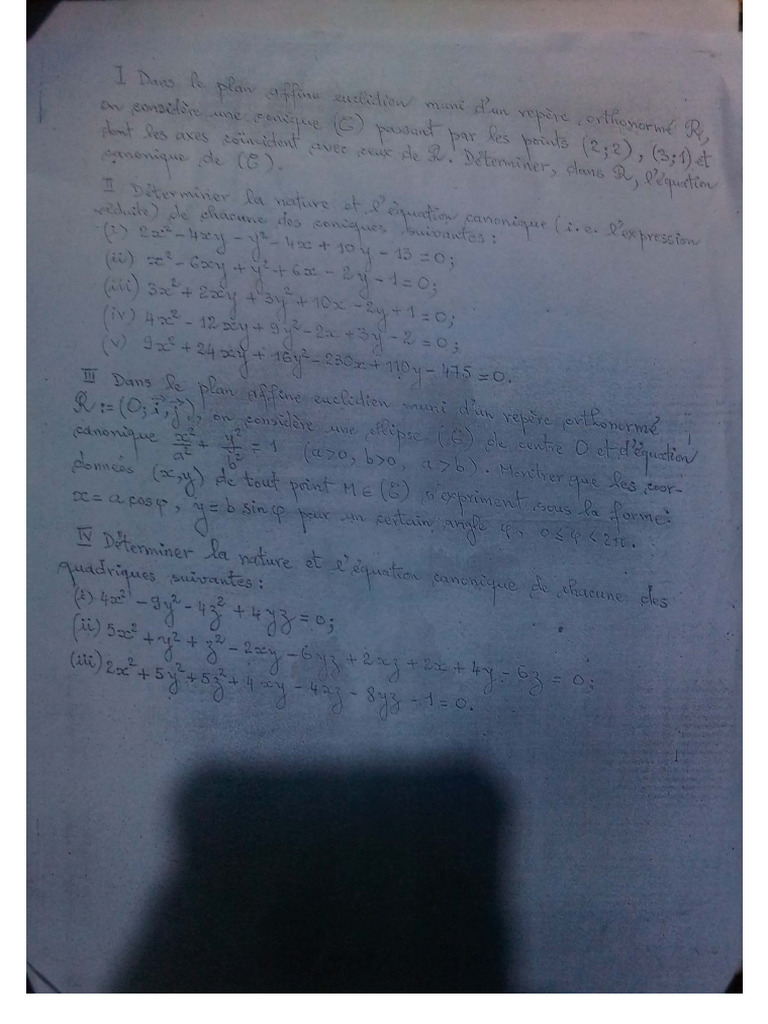 I Dans le plan affine euclidien muni d'un repère orthonormé R,
on considère une conique (C) passant par les points (2;2), (3;1) et
dont les axes coïncident avec ceux de R. Déterminer, dans R, l'équation
canonique de (C).
II Déterminer la nature et l'équation canonique (i.e. l'expression
réduite) de chacune des coniques suivantes:
(i) 2x² - 4xy - y² - 4x + 10y - 13 = 0;
(ii) x² - 6xy + y² + 6x - 2y - 1 = 0;
(iii) 3x² + 2xy + 3y² + 10x - 2y + 1 = 0;
(iv) 4x² - 12xy + 9y² - 2x + 3y - 2 = 0;
(v) 9x² + 24xy + 16y² - 230x + 110y - 475 = 0.
III Dans le plan affine euclidien muni d'un repère orthonormé
R := (O; i⃗, j⃗), on considère une ellipse (E) de centre O et d'équation
canonique x²/a² + y²/b² = 1 (a>0, b>0, a>b). Montrer que les coor-
données (x,y) de tout point M ∈ (E) s'expriment sous la forme:
x = a cosφ, y = b sinφ pour un certain angle φ, 0 ≤ φ < 2π.
IV Déterminer la nature et l'équation canonique de chacune des
quadriques suivantes:
(i) 4x² - 9y² - 4z² + 4yz = 0;
(ii) 5x² + y² + z² - 2xy - 6yz + 2xz + 2x + 4y - 6z = 0;
(iii) 2x² + 5y² + 5z² + 4xy - 4xz - 8yz - 1 = 0.